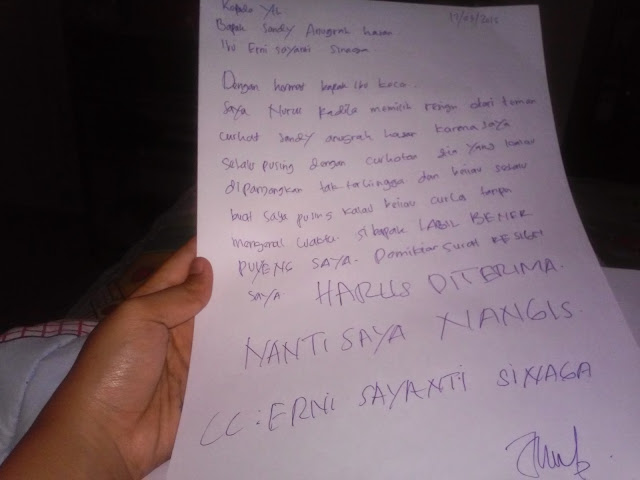 Kepada Yth
12/03/2015
Bapak Sandy Anugrah Hasan
Ibu Erni Sayanti Sinaga
Dengan hormat bapak ibu kece..
Saya Nurus Kadila memilih resign dari teman
curhat Sandy Anugrah Hasan karna saya
selalu pusing dengan curhatan dia yang
dipanjangkan tak terhingga dan beliau selalu
buat saya pusing kalau beliau curhat tanpa
mengenal waktu. si bapak LABIL BENER
PUYENG SAYA. Demikian surat RESIGN
saya HARUS DITERIMA.
NANTI SAYA NANGIS.
CC : ERNI SAYANTI SINAGA